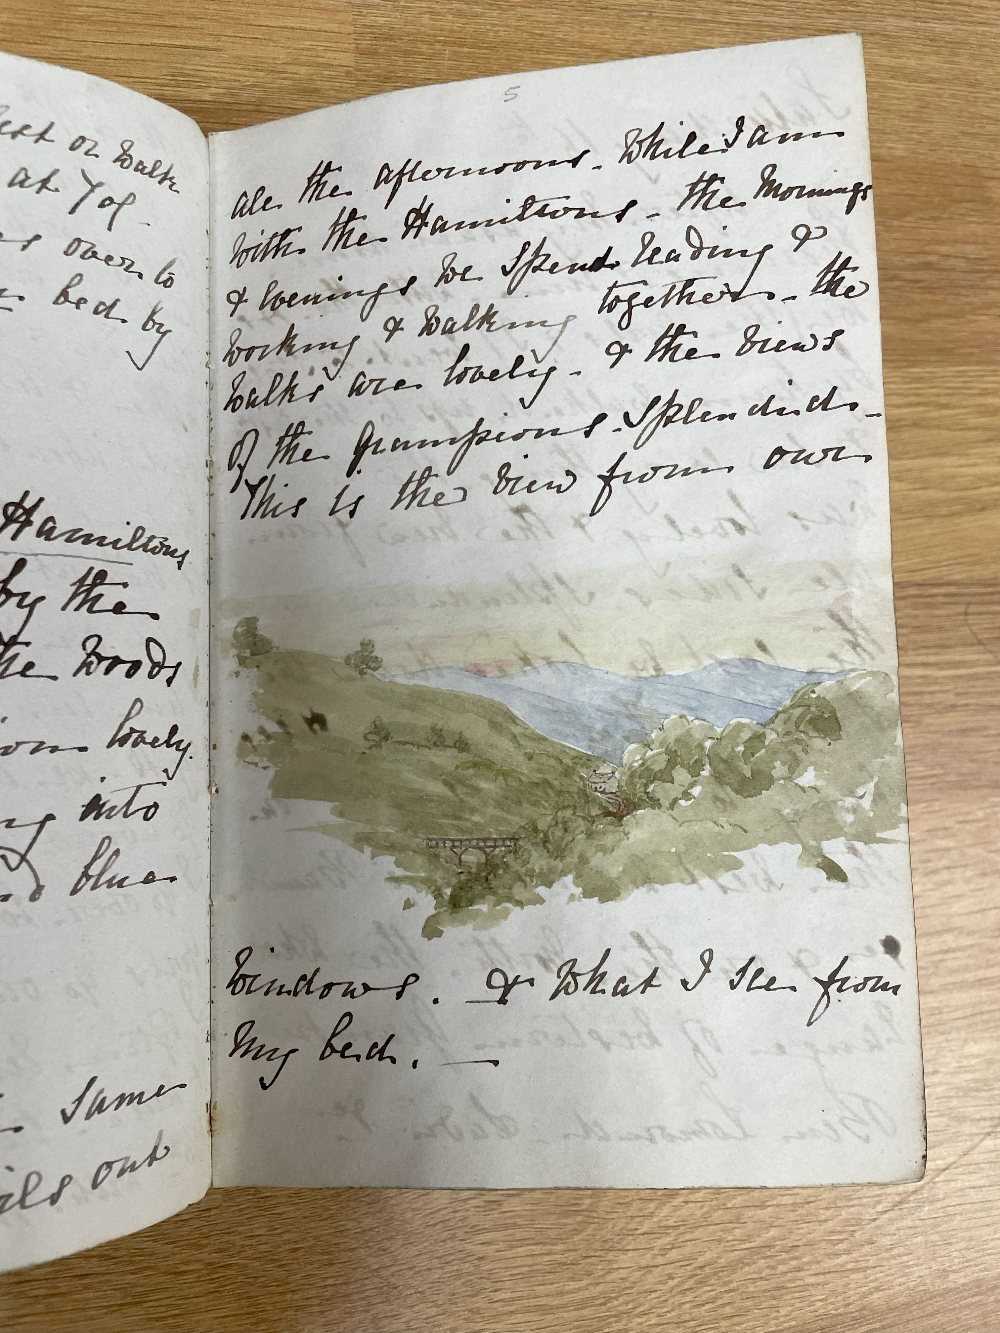 est or walk
at Yof-
es over to
bed by
Hamiltons
by the
the woods
lovely.
ng into
blue
same
ils out
5
all the afternoons. While I am
with the Hamiltons - the Mornings
& Evenings we spend reading &
working & walking together - the
walks are lovely - & the views
of the Grampions - Splendid -
This is the view from our
windows. & what I see from
my bed. —